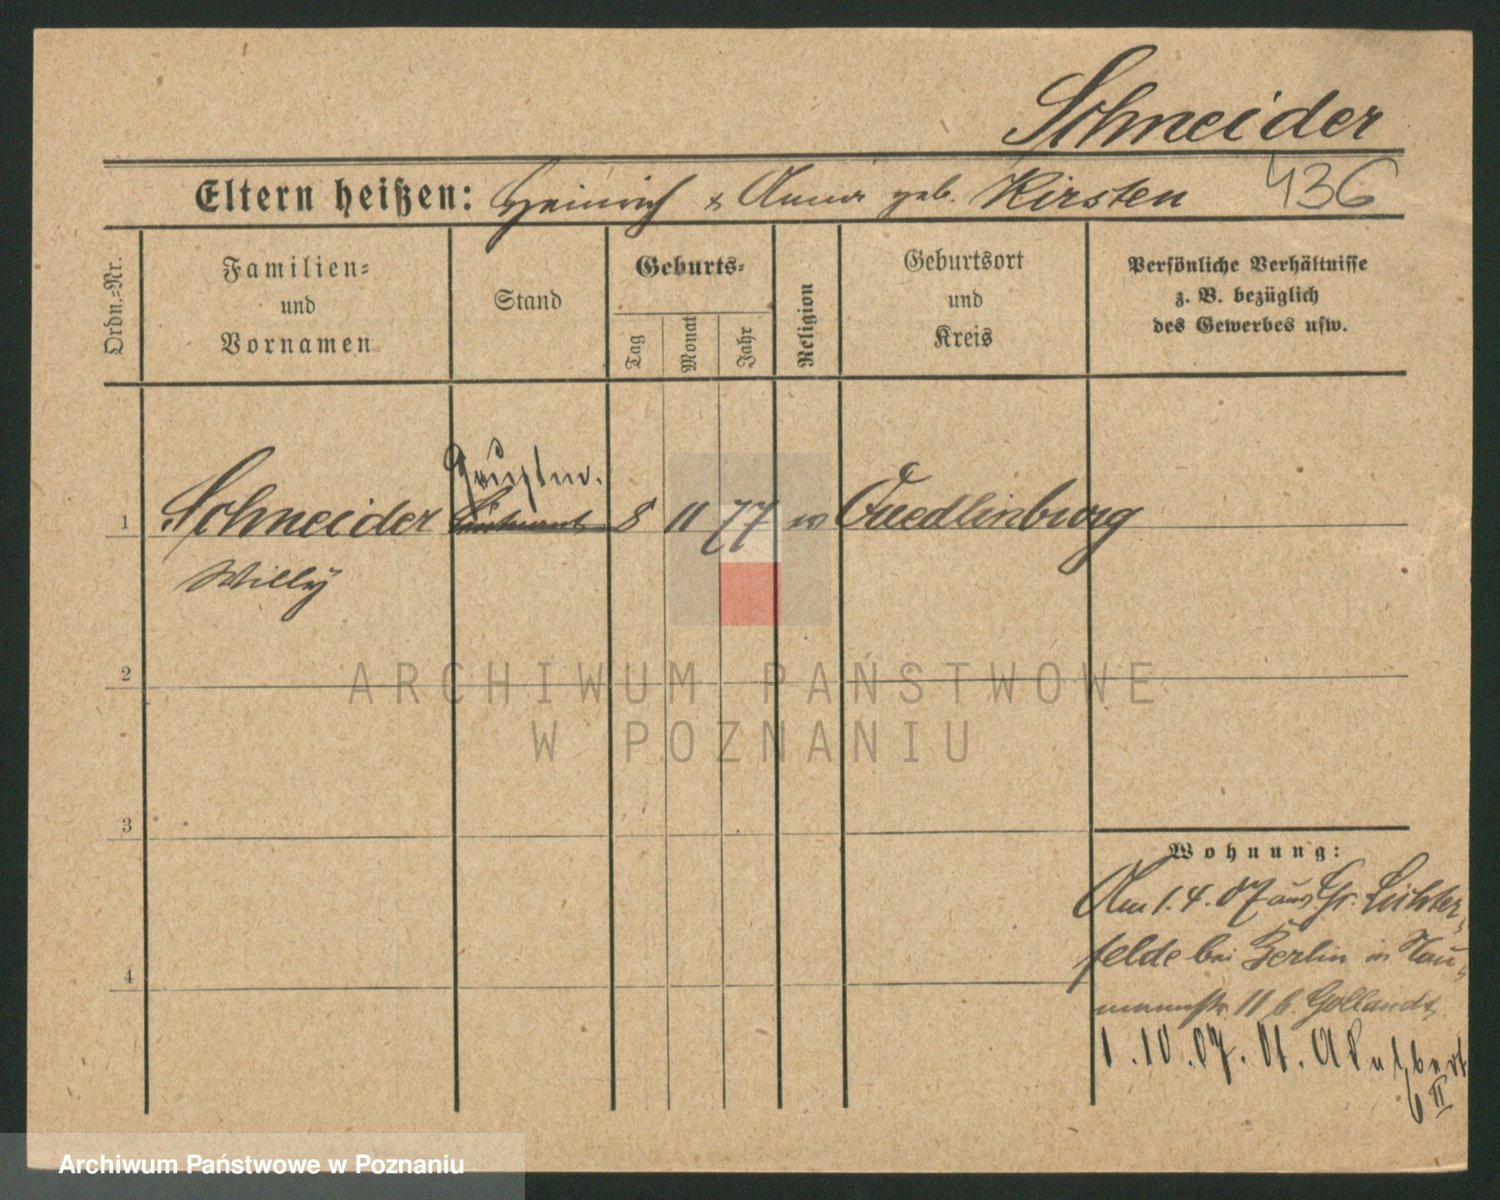 Schneider
Eltern heißen: Heinrich & Anna geb. Kirsten 436
Ordn.=Nr.
Familien=
und
Vornamen
Stand
Geburts=
Tag
Monat
Jahr
Religion
Geburtsort
und
Kreis
Persönliche Verhältnisse
z. B. bezüglich
des Gewerbes usw.
Hauptm.
1 Schneider Leutnant 8 11 77 ev Quedlinburg
Willy
2
3
4
Wohnung:
Am 1.4.07 aus Gr. Lichter=
felde bei Berlin in Nau=
mannstr. 11 b. Gollandt.
1.10.07.
6 II
ARCHIWUM PAŃSTWOWE
W POZNANIU
Archiwum Państwowe w Poznaniu